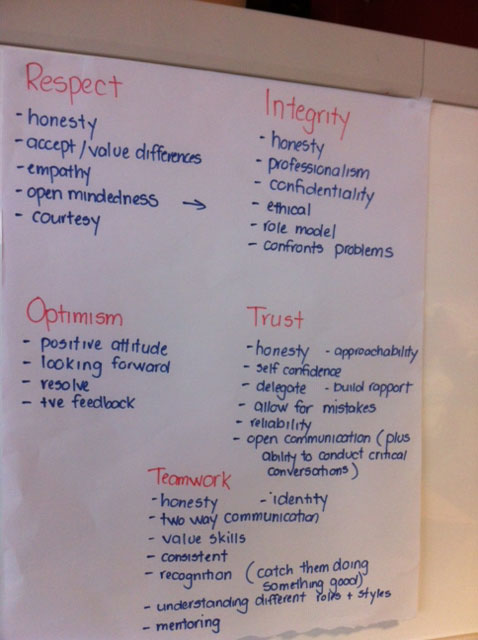 Respect
- honesty
- accept/value differences
- empathy
- open mindedness →
- courtesy
Integrity
- honesty
- professionalism
- confidentiality
- ethical
- role model
- confronts problems
Optimism
- positive attitude
- looking forward
- resolve
- +ve feedback
Trust
- honesty - approachability
- self confidence
- delegate - build rapport
- allow for mistakes
- reliability
- open communication (plus
ability to conduct critical
conversations)
Teamwork
- honesty - identity
- two way communication
- value skills
- consistent
- recognition (catch them doing
something good)
- understanding different roles + styles
- mentoring